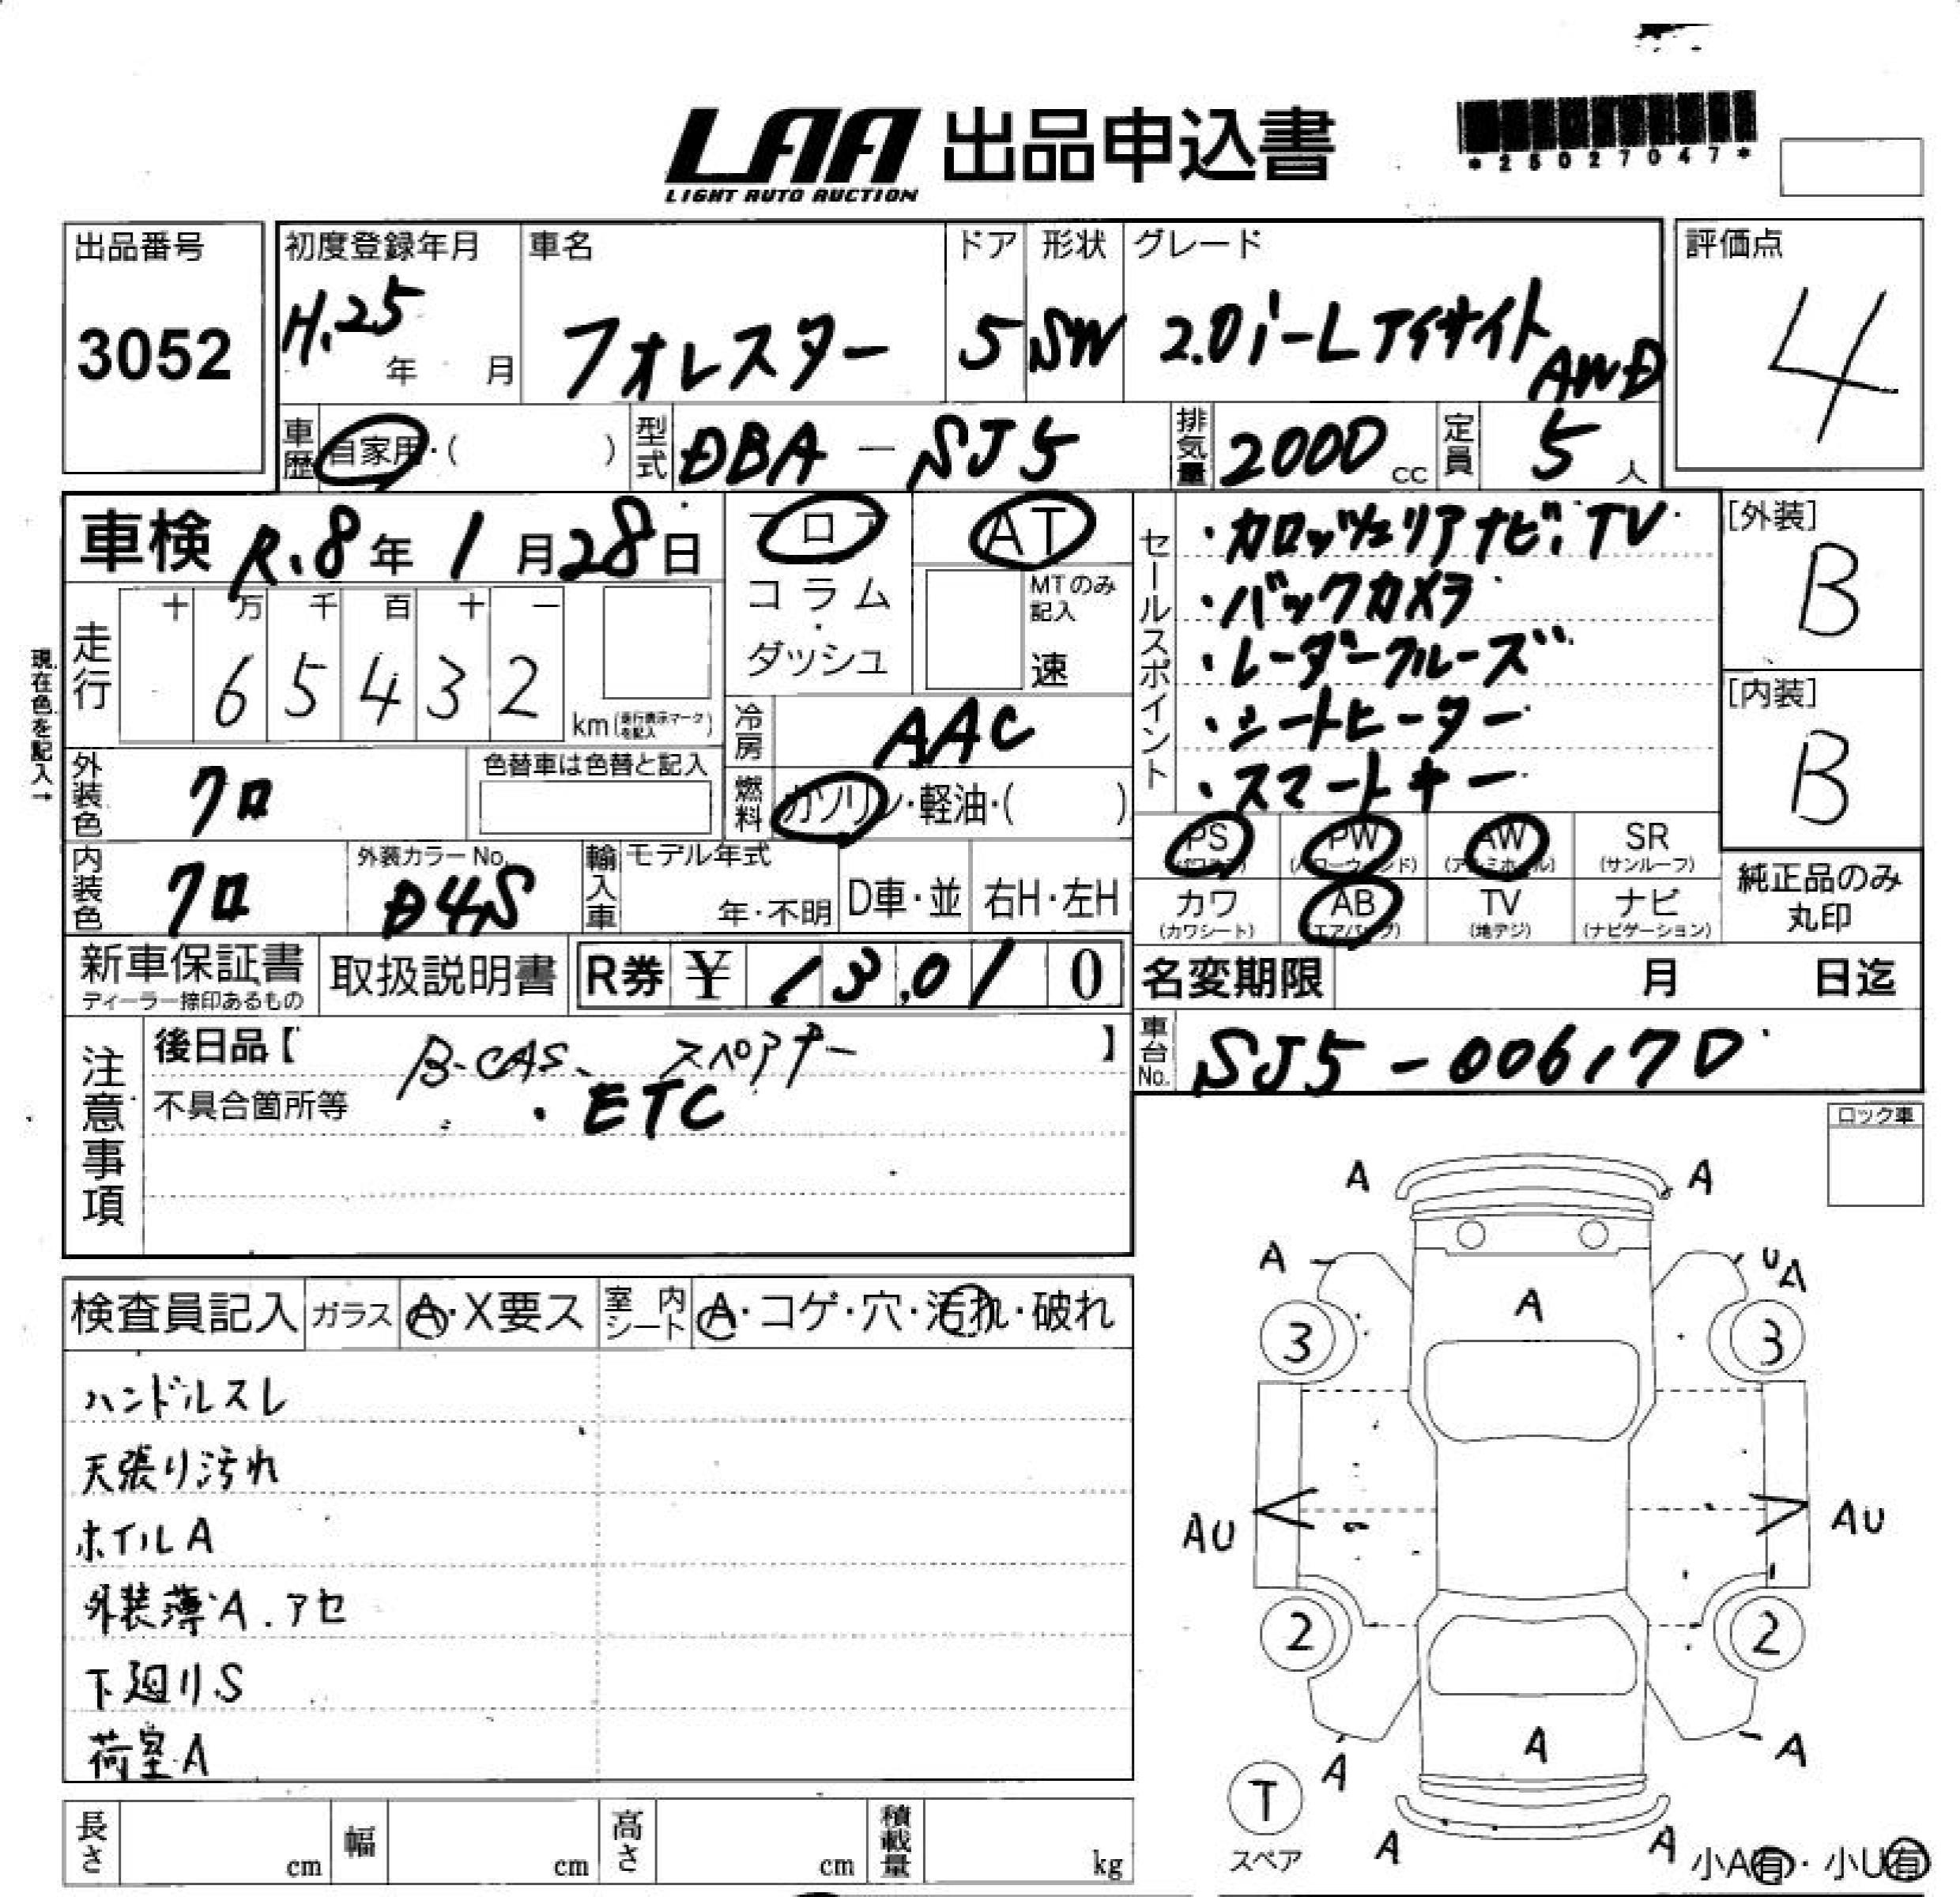 LAA 出品申込書
LIGHT AUTO AUCTION
*25027047*
出品番号
3052
初度登録年月
H.25年 月
車名
フォレスター
ドア
5
形状
SW
グレード
2.0i-L アイサイト
AWD
評価点
4
車歴 自家用・( )
型式 DBA-SJ5
排気量 2000 cc
定員 5 人
車検 R.8年1月28日
フロア
コラム・ダッシュ
AT
MTのみ記入
速
セールスポイント
・カロッツェリアナビ、TV
・バックカメラ
・レーダークルーズ
・シートヒーター
・スマートキー
[外装]
B
[内装]
B
現在色を記入→
走行
十 万 千 百 十 一
6 5 4 3 2
km(走行表示マークを記入)
冷房 AAC
燃料 ガソリン・軽油・( )
外装色 クロ
色替車は色替と記入
内装色 クロ
外装カラーNo.
D4S
輸入車
モデル年式
年・不明
D車・並
右H・左H
PS (パワステ)
PW (パワーウィンド)
AW (アルミホイル)
SR (サンルーフ)
カワ (カワシート)
AB (エアバッグ)
TV (地デジ)
ナビ (ナビゲーション)
純正品のみ丸印
新車保証書
ディーラー捺印あるもの
取扱説明書
R券 ¥ 13,010
名変期限 月 日迄
車台No. SJ5-006170
注意事項
後日品【 B-CAS、スペアキー 】
不具合箇所等 ・ETC
ロック車
検査員記入 ガラス A・X要ス 室内シート A・コゲ・穴・汚れ・破れ
ハンドルスレ
天張り汚れ
ホイルA
外装薄A.アセ
下廻りS
荷室A
A A
A UA
A
3 3
AU AU
2 2
A
A A
T
スペア
A A
小A有・小U有
長さ cm
幅 cm
高さ cm
積載量 kg